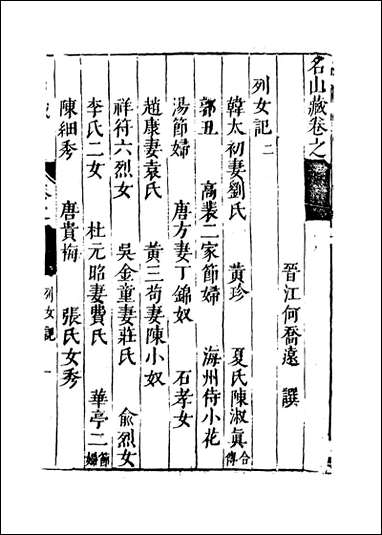 名山藏卷之
晉江何喬遠 譔
列女記二
韓太初妻劉氏 黃珍 夏氏陳淑眞合傳
郭丑 高裴二家節婦 海州侍小花
湯節婦 唐方妻丁錦奴 石孝女
趙康妻袁氏 黃三苟妻陳小奴
祥符六烈女 吳金童妻莊氏 俞烈女
李氏二女 杜元昭妻費氏 華亭二節婦
陳細秀 唐貴梅 張氏女秀
列女記 一